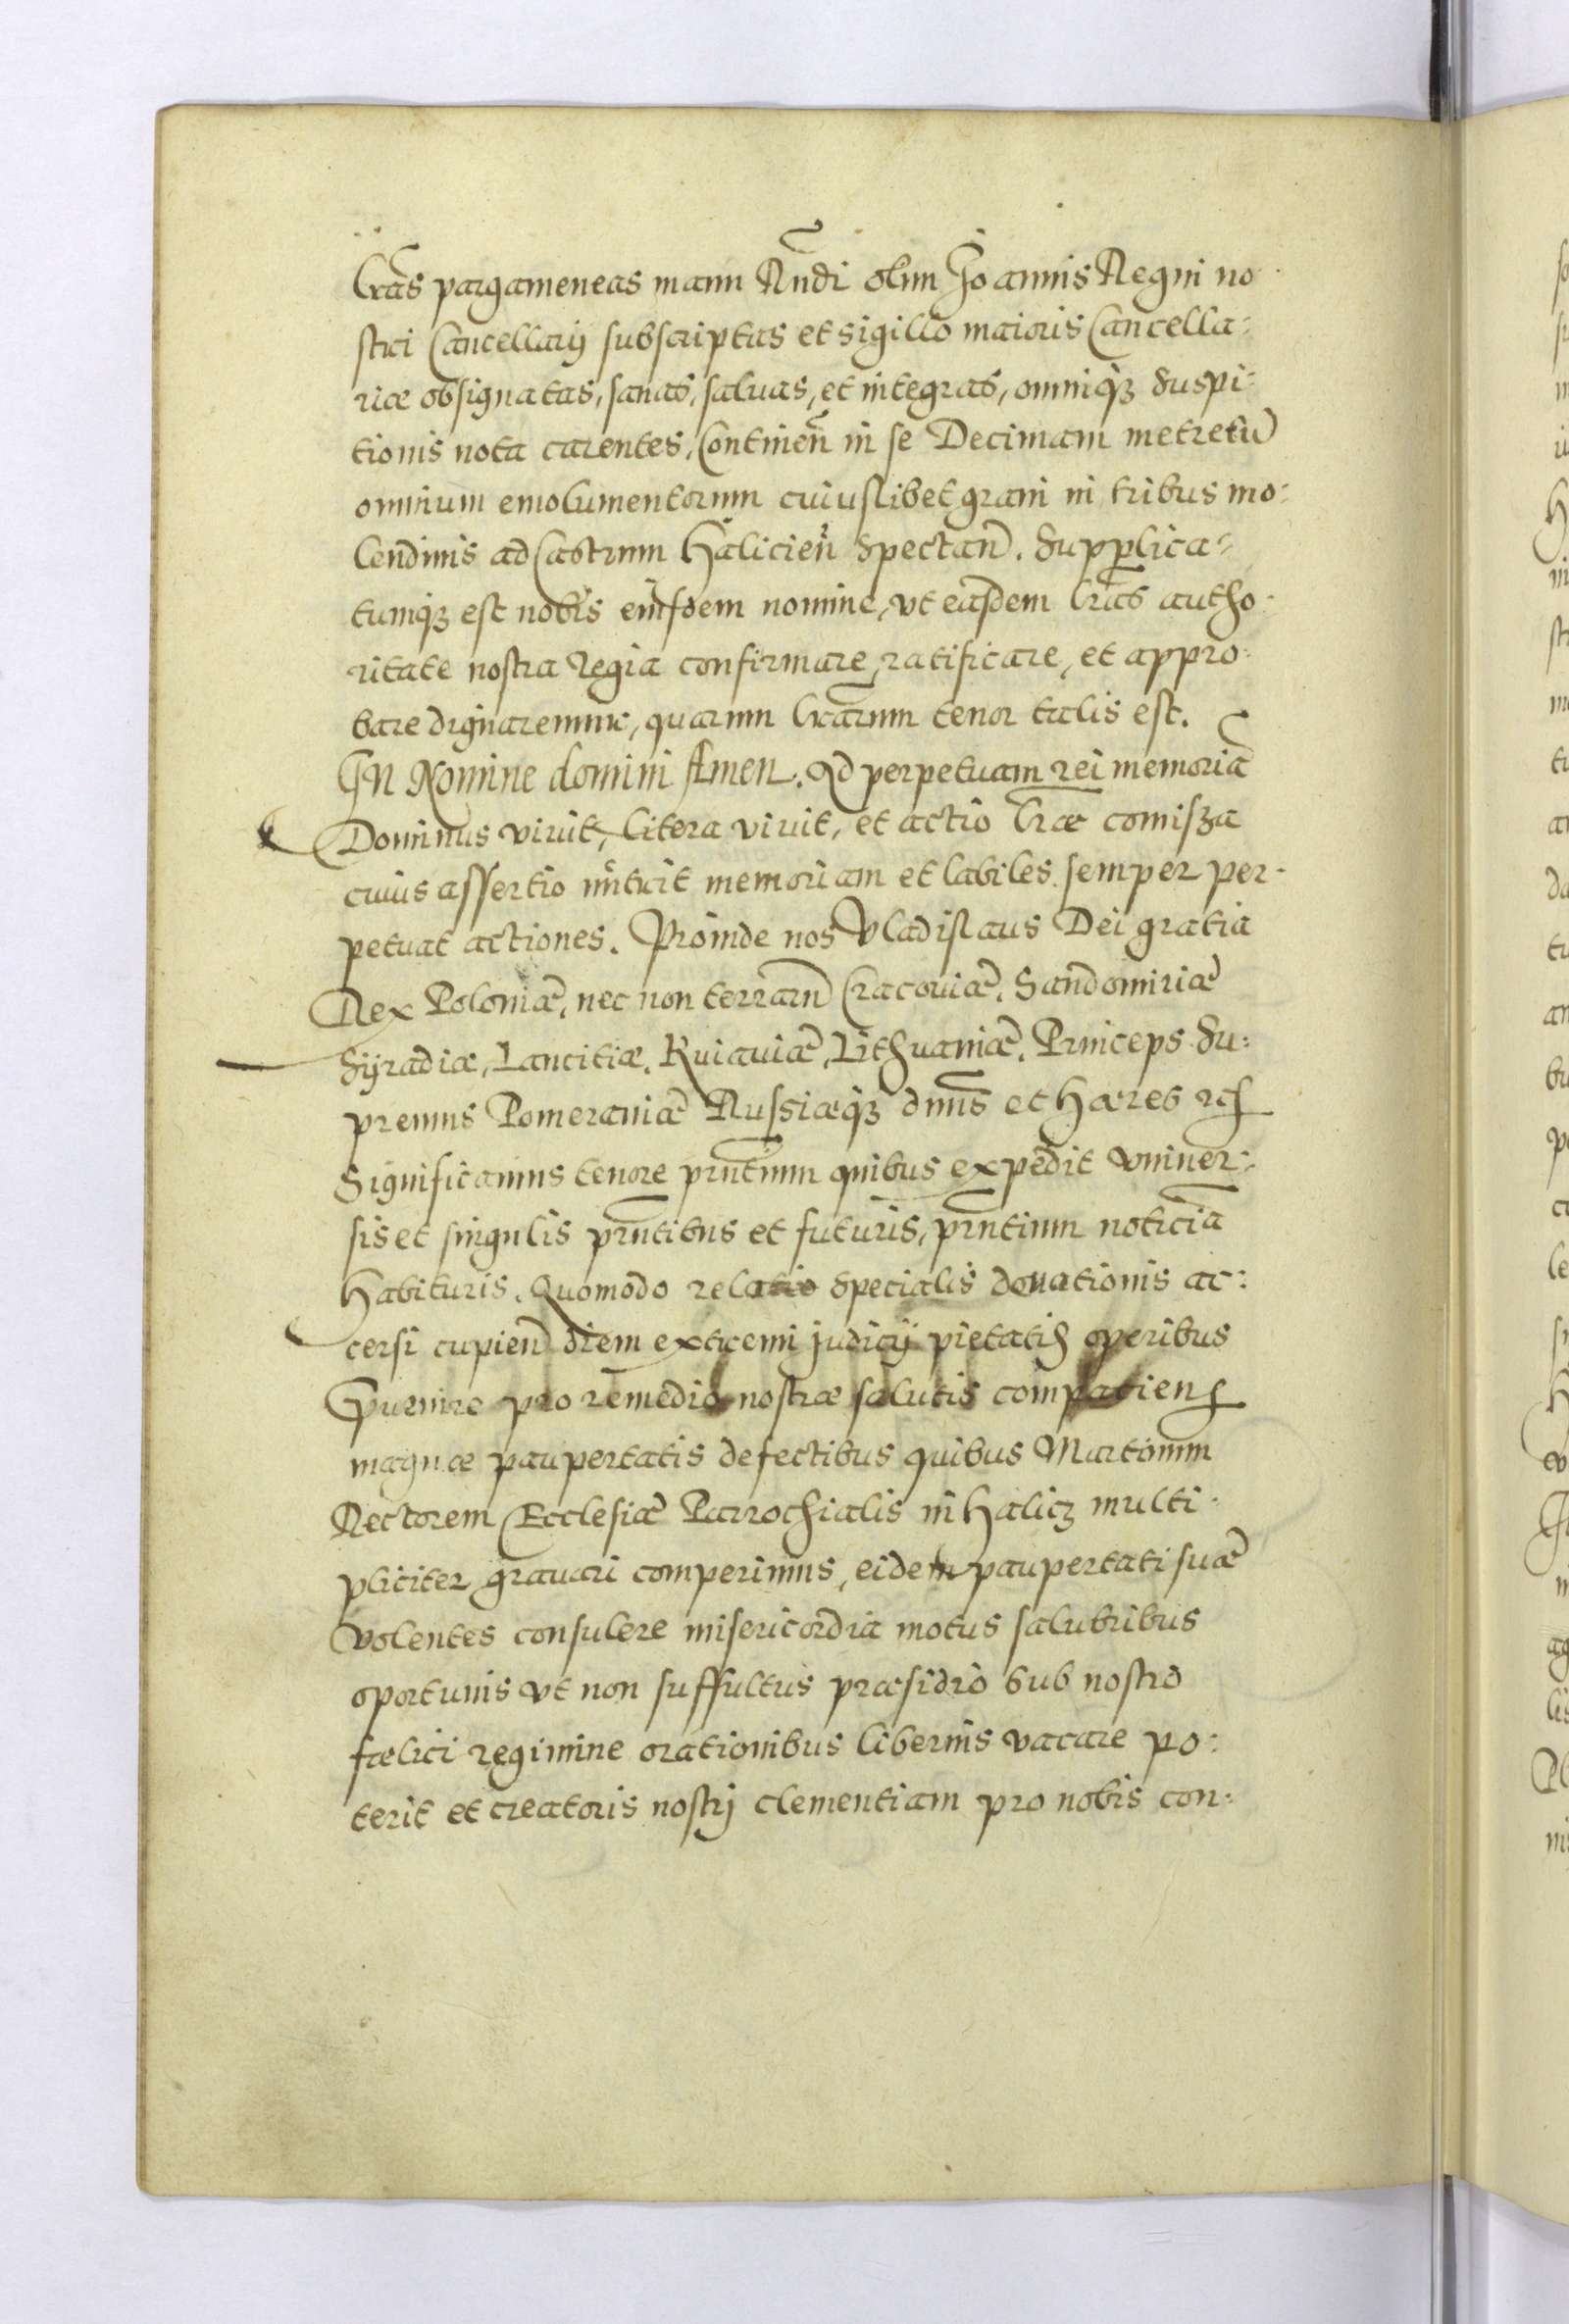 Lras pargameneas manu Rndi olim Joannis Regni no
stri Cancellarij subscriptas et sigillo maioris Cancella:
riæ obsignatas, sanas, saluas, et integras, omniqꝫ suspi:
tionis nota carentes, Continen in se Decimam metretu
omnium emolumentorum cuiuslibet grani in tribus mo:
lendinis ad Castrum Halicien spectan. Supplica:
tumqꝫ est nobis eiusdem nomine, vt easdem Lras autho:
ritate nostra Regia confirmare, ratificare, et appro:
bare dignaremur, quarum Lrarum tenor talis est.
In Nomine domini Amen. Ad perpetuam rei memoriã
Dominus viuit, litera viuit, et actio Lræ comissa
cuius assertio nutrit memoriam et labiles semper per:
petuat actiones. Proinde nos Vladislaus Dei gratia
Rex Poloniæ, nec non terraru Cracouiæ, Sandomiriæ
Syradiæ, Lancitiæ, Kuiauiæ, Lithuaniæ, Princeps Su:
premus Pomeraniæ Russiæqꝫ dnus et Hæres etc
Significamus tenore prntium quibus expedit vniuer:
sis et singulis prntibus et futuris, prntium noticiã
habituris. Quomodo relatio specialis donationis ac:
cersi cupien diem extremi judicij pietatis operibus
Puenire pro remedio nostræ salutis compatiens
magnæ paupertatis defectibus quibus Martinum
Rectorem Ecclesiæ Parrochialis in Halicz multi:
pliciter grauari comperimus, eidem paupertati suæ
volentes consulere misericordia motus salubribus
oportunis vt non suffultus præsidio sub nostro
fælici regimine orationibus liberius vacare po:
terit et creatoris nostrj clementiam pro nobis con: